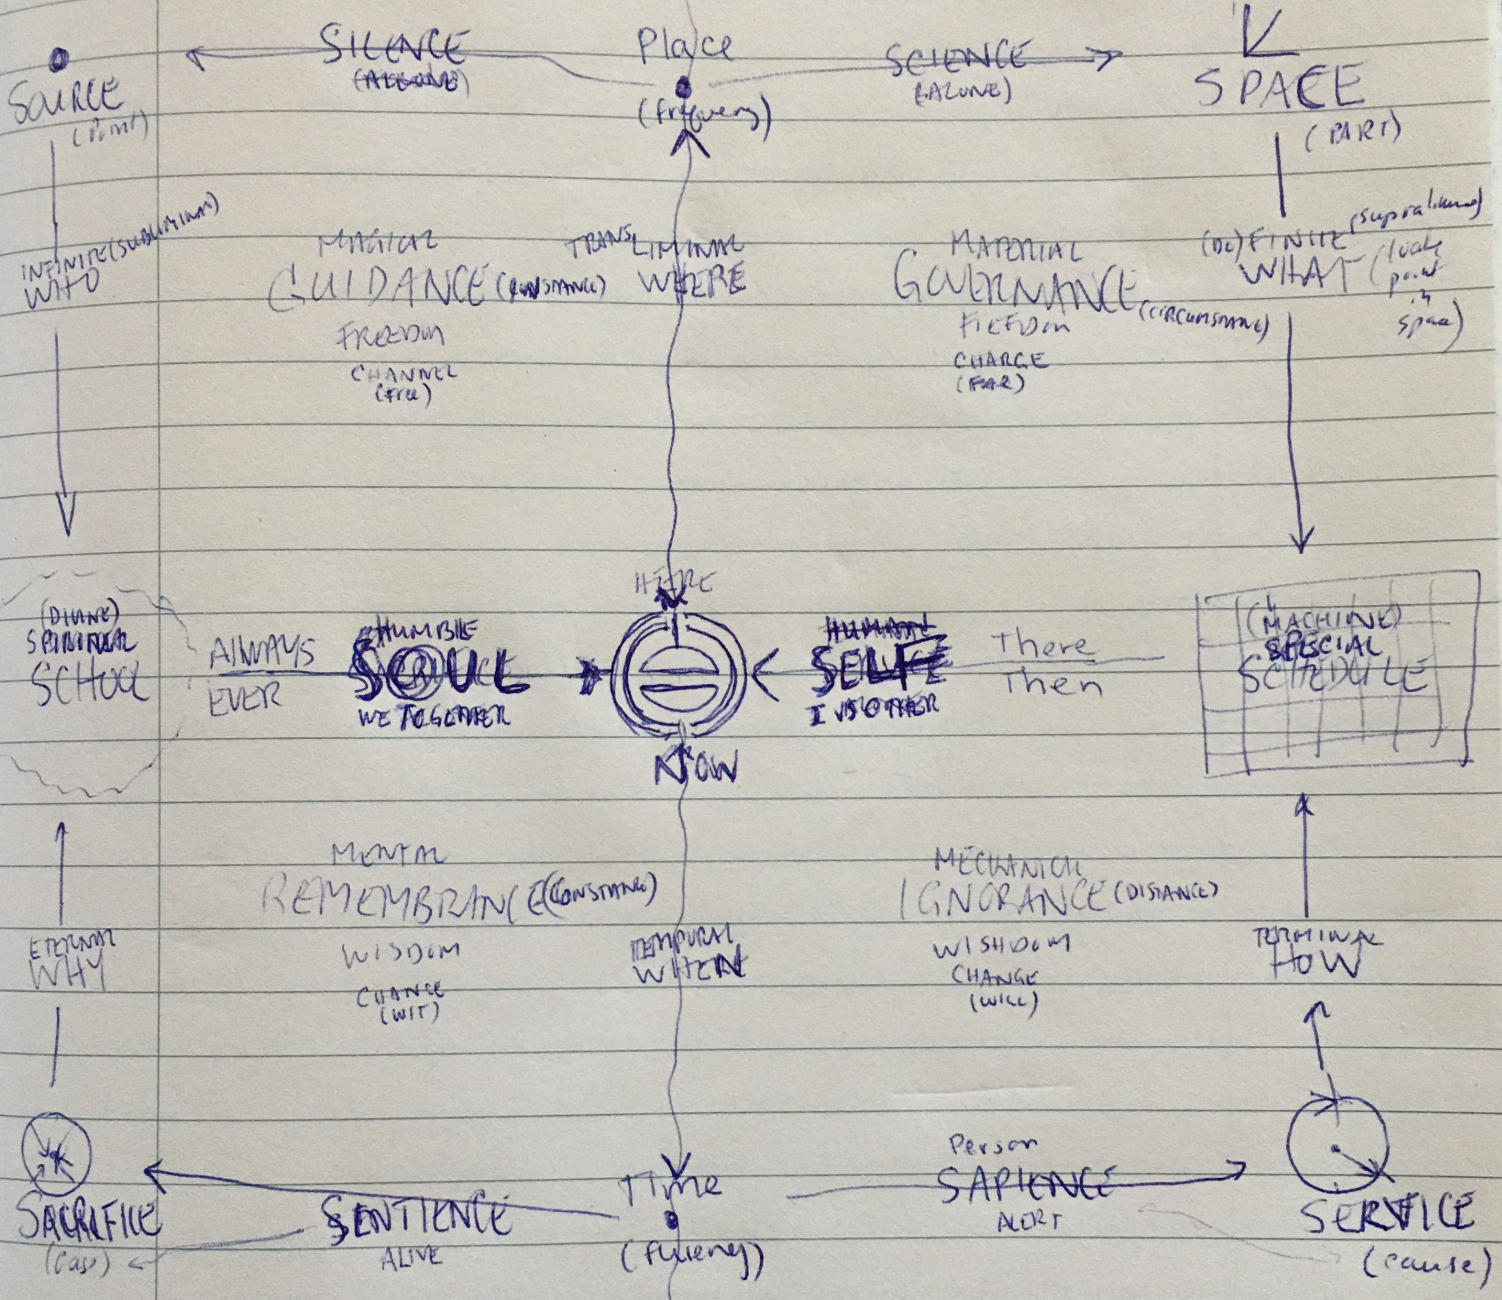 SILENCE
Place
SCIENCE
SOURCE
(Point)
(frequency)
(ALONE)
SPACE
(PART)
INFINITE (SUBLIMINAL)
WHO
MAGICAL
GUIDANCE
FREEDOM
CHANNEL
(Free)
TRANSLIMINAL
WHERE
MATERIAL
GOVERNANCE
(CIRCUMSTANCE)
FIEFDOM
CHARGE
(FEAR)
(De)FINITE (supraliminal)
WHAT
point
in
space)
HERE
(DIVINE)
SPIRITUAL
SCHOOL
ALWAYS
EVER
HUMBLE
SOUL
WE TOGETHER
HUMAN
SELF
I VS OTHER
There
Then
(MACHINE)
SPECIAL
SCHEDULE
NOW
MENTAL
REMEMBRANCE (CONSTANCE)
WISDOM
CHANCE
(WIT)
TEMPORAL
WHEN
MECHANICAL
IGNORANCE (DISTANCE)
WISHDOM
CHANGE
(WILL)
ETERNAL
WHY
TERMINAL
HOW
SACRIFICE
SENTIENCE
ALIVE
Time
Person
SAPIENCE
ALERT
SERVICE
(cause)